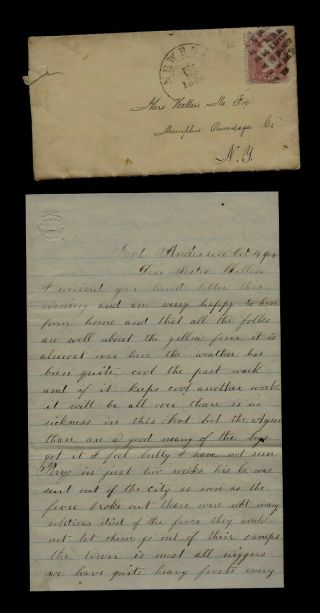 NEW BER
Mrs Hellen Mc Fox
Memphis Onondaga Co
N. Y.
Foort Anderson Oct 19
Dear Sister Hellen
I received your kind letter this
evening and am very happy to hear
from home and that all the folks
are well about the yellow fever it is
almost over here the weather has
been quite cool the past week
and if it keeps cool another week
it will be all over thare is no
sickness in this foort but the Ague
thare are a good many of the boys
got it I feel bully I have not seen
in just two weeks his Co was
sent out of the city as soon as the
fever broke out thare were not many
soldiers died of the fever they would
not let them go out of their camps
the town is most all niggers
we have quite heavy frosts every